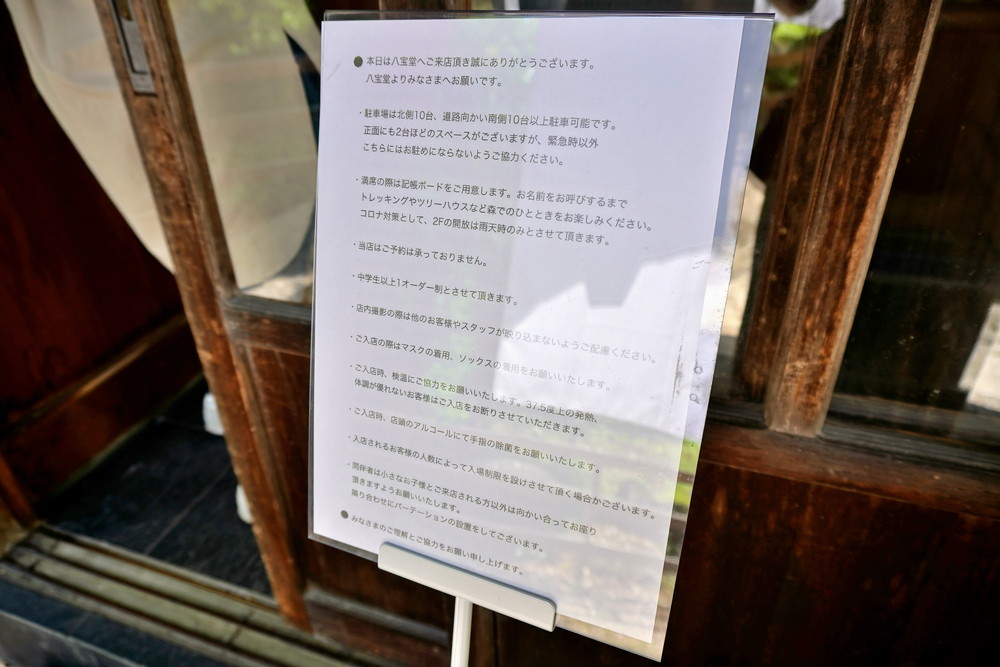 ●本日は八宝堂へご来店頂き誠にありがとうございます。
八宝堂よりみなさまへお願いです。
・駐車場は北側10台、道路向かい南側10台以上駐車可能です。
正面にも2台ほどのスペースがございますが、緊急時以外
こちらにはお駐めにならないようご協力ください。
・満席の際は記帳ボードをご用意します。お名前をお呼びするまで
トレッキングやツリーハウスなど森でのひとときをお楽しみください。
コロナ対策として、2Fの開放は雨天時のみとさせて頂きます。
・当店はご予約は承っておりません。
・中学生以上1オーダー制とさせて頂きます。
・店内撮影の際は他のお客様やスタッフが映り込まないようご配慮ください。
・ご入店の際はマスクの着用、ソックスの着用をお願いいたします。
・ご入店時、検温にご協力をお願いいたします。37.5度上の発熱、
体調が優れないお客様はご入店をお断りさせていただきます。
・ご入店時、店頭のアルコールにて手指の除菌をお願いいたします。
・入店されるお客様の人数によって入場制限を設けさせて頂く場合がございます。
・同伴者は小さなお子様とご来店される方以外は向かい合ってお座り
頂きますようお願いいたします。
隣り合わせにパーテーションの設置をしてございます。
●みなさまのご理解とご協力をお願い申し上げます。